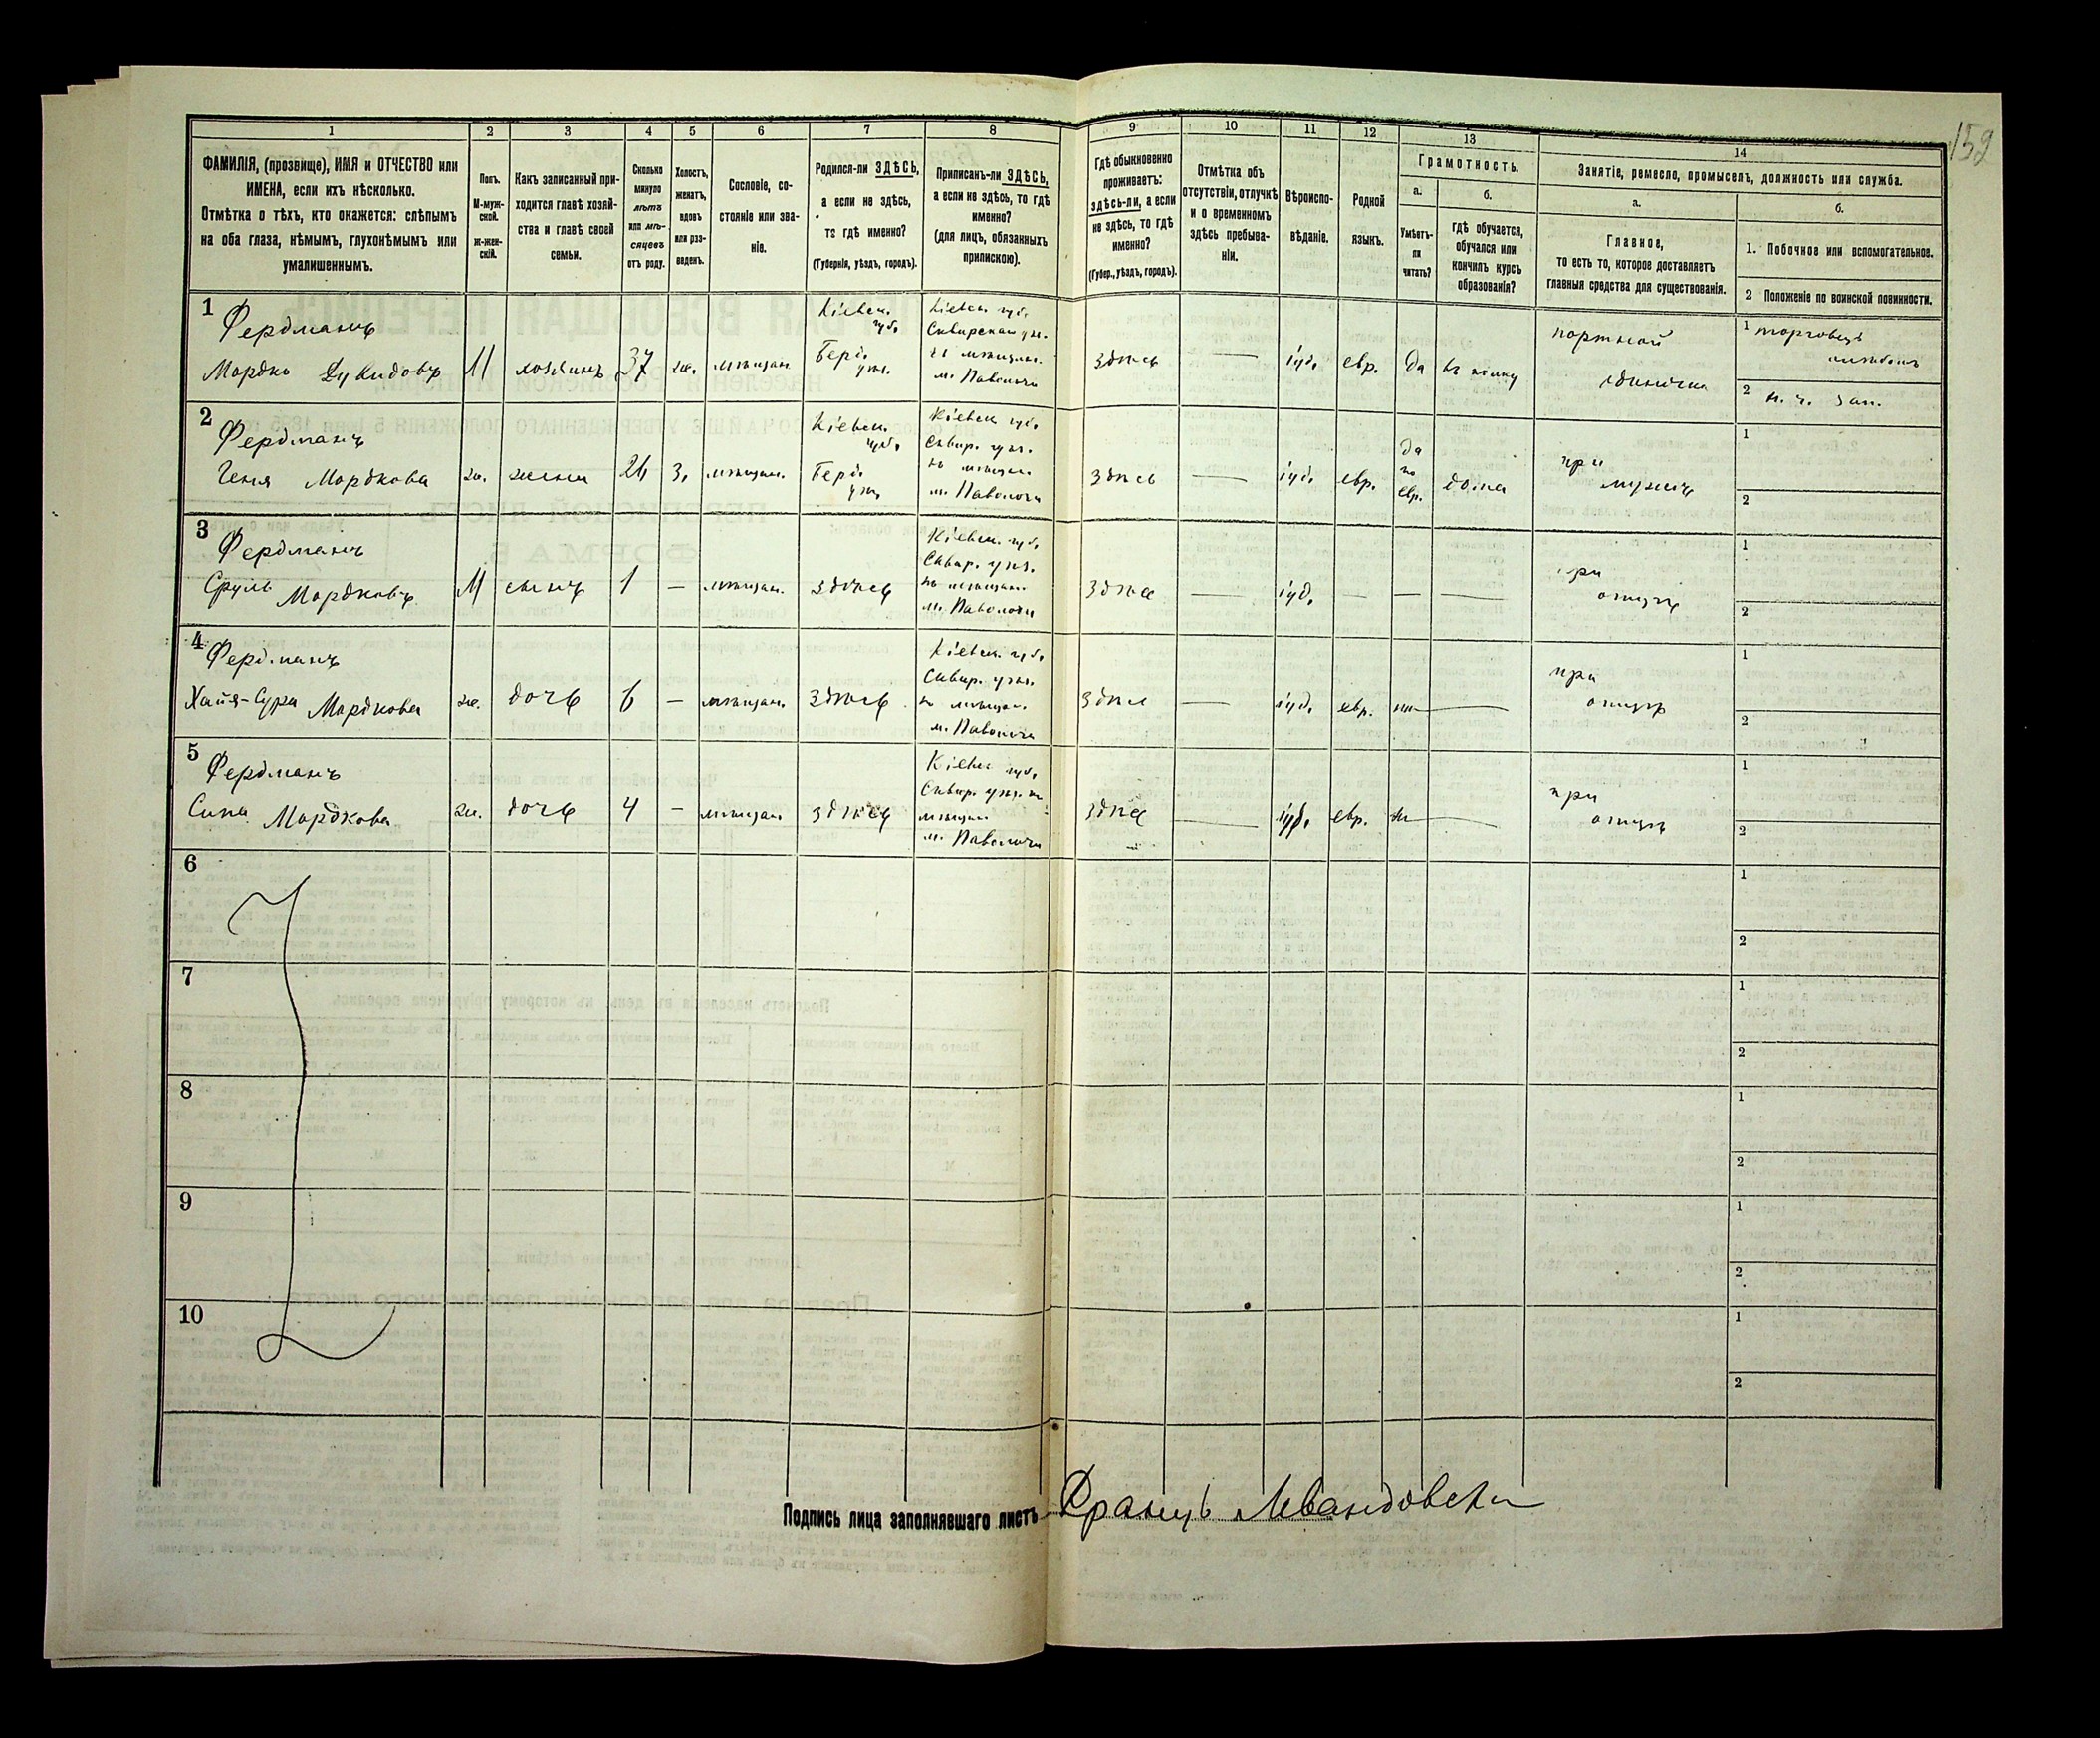 159
1
2
3
4
5
6
7
8
9
10
11
12
13
14
ФАМИЛІЯ, (прозвище), ИМЯ и ОТЧЕСТВО или
ИМЕНА, если ихъ нѣсколько.
Отмѣтка о тѣхъ, кто окажется: слѣпымъ
на оба глаза, нѣмымъ, глухонѣмымъ или
умалишеннымъ.
Полъ.
М-муж-
ской.
Ж-жен-
скій.
Какъ записанный при-
ходится главѣ хозяй-
ства и главѣ своей
семьи.
Сколько
минуло
лѣтъ
или мѣ-
сяцевъ
отъ роду.
Холостъ,
женатъ,
вдовъ
или раз-
веденъ.
Сословіе, со-
стояніе или зва-
ніе.
Родился-ли ЗДѢСЬ,
а если не здѣсь,
то гдѣ именно?
(Губернія, уѣздъ, городъ).
Приписанъ-ли ЗДѢСЬ,
а если не здѣсь, то гдѣ
именно?
(для лицъ, обязанныхъ
припискою).
Гдѣ обыкновенно
проживаетъ:
здѣсь-ли, а если
не здѣсь, то гдѣ
именно?
(Губер., уѣздъ, городъ).
Отмѣтка объ
отсутствіи, отлучкѣ
и о временномъ
здѣсь пребыва-
ніи.
Вѣроиспо-
вѣданіе.
Родной
языкъ.
Грамотность.
а.
Умѣетъ-
ли
читать?
б.
гдѣ обучается,
обучался или
кончилъ курсъ
образованія?
Занятіе, ремесло, промыселъ, должность или служба.
а.
Главное,
то есть то, которое доставляетъ
главныя средства для существованія.
б.
1. Побочное или вспомогательное.
2 Положеніе по воинской повинности.
1
Фердманъ
Мордко
М
хозяинъ
37
ж.
мѣщан.
Кіевск.
губ.
Берд.
уѣз.
Кіевск. губ.
Сквирскаго уѣз.
м. Паволочи
здѣсь
—
іуд.
евр.
да
портной
одиночка
1 торговецъ
хлѣбомъ
2
2
Фердманъ
Геня Мордкова
ж.
жена
26
З.
мѣщан.
Кіевск.
губ.
Берд.
уѣз.
Кіевск. губ.
Сквир. уѣз.
къ мѣщан.
м. Паволочи
здѣсь
—
іуд.
евр.
да
по
евр.
дома
при
мужѣ
1
2
3
Фердманъ
Сруль Мордковъ
М
сынъ
1
—
мѣщан.
здѣсь
Кіевск. губ.
Сквир. уѣз.
къ мѣщан.
м. Паволочи
здѣсь
—
іуд.
—
—
—
при
отцѣ
1
2
4
Фердманъ
Хайя-Сура Мордкова
ж.
дочь
6
—
мѣщан.
здѣсь
Кіевск. губ.
Сквир. уѣз.
къ мѣщан.
м. Паволочи
здѣсь
—
іуд.
евр.
—
при
отцѣ
1
2
5
Фердманъ
Мордкова
ж.
дочь
4
—
мѣщан.
здѣсь
Кіевск. губ.
Сквир. уѣз. къ
мѣщан.
м. Паволочи
здѣсь
—
іуд.
евр.
—
при
отцѣ
1
2
6
1
2
7
1
2
8
1
2
9
1
2
10
1
2
Подпись лица заполнявшаго листъ Францъ Левандовски